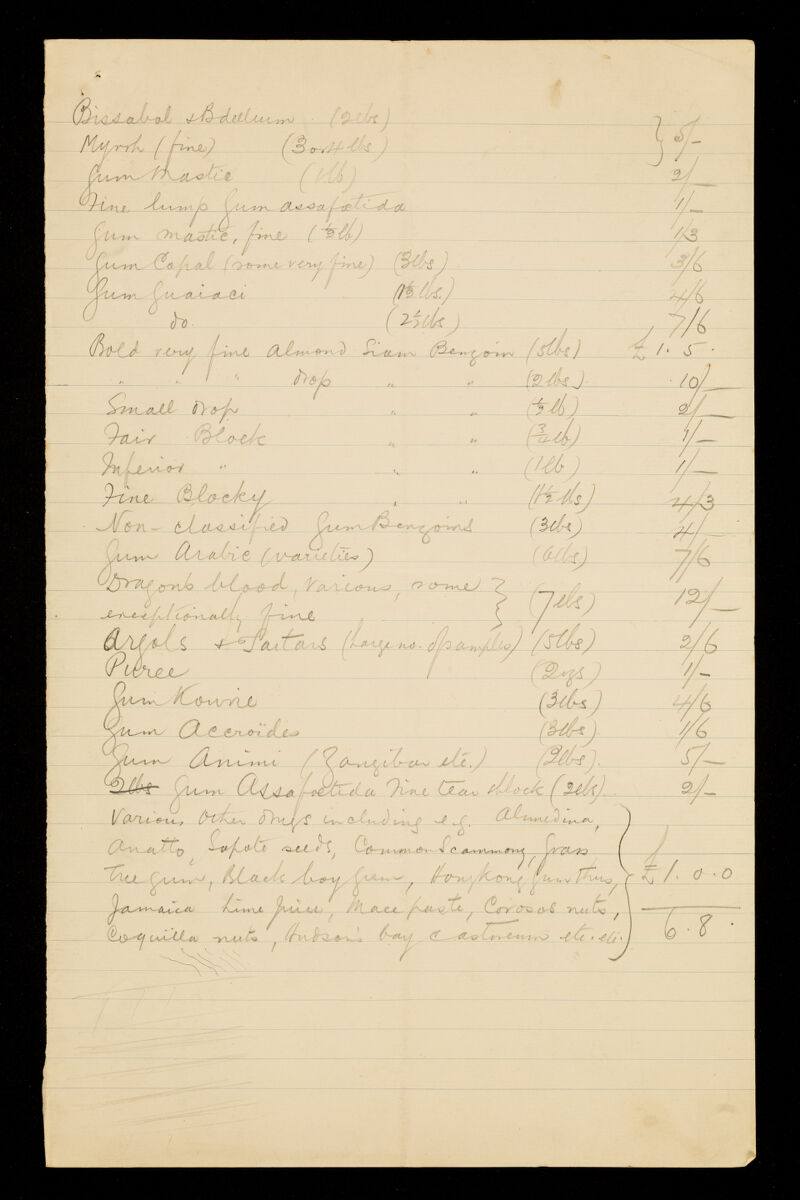 Bissabol & Bdellium (2lbs) } 5/-
Myrrh (fine) (3 or 4 lbs)
Gum Mastic (1lb) 2/-
Fine lump Gum assafœtida 1/-
Gum mastic, fine (½lb) 1/3
Gum Copal (some very fine) (3lbs) 3/6
Gum Guaiaci (1½lbs.) 4/6
do. (2½lbs) 7/6
Bold very fine Almond Siam Benzoin (5lbs) £1.5.
" " " drop " " (2lbs). 10/-
Small drop " " (½lb) 2/-
Fair Block " " (¾lb) 1/-
Inferior " " " (1lb) 1/-
Fine Blocky " " (1½lbs) 4/3
Non-classified Gum Benzoins (3lbs) 4/-
Gum Arabic (varieties) (6lbs) 7/6
Dragon's blood, various, some } (7lbs) 12/-
exceptionally fine
Argols & Tartars (Large no. of samples) (5lbs) 2/6
Puree (2ozs) 1/-
Gum Kowrie (3lbs) 4/6
Gum Accroïdes (3lbs) 1/6
Gum Animi (Zanzibar etc.) (2lbs). 5/-
2lbs Gum Assafœtida Fine tear & block (2lbs). 2/-
Various other drugs including e.g. Almedina,
Anatto, Sapote seeds, Common Scammony, Grass
tree gum, Black boy gum, Hongkong gum thus, } £1.0.0
Jamaica Lime Juice, Mace paste, Corosos nuts,
Coquilla nuts, Hudson's bay castoreum etc. etc. 6.8.